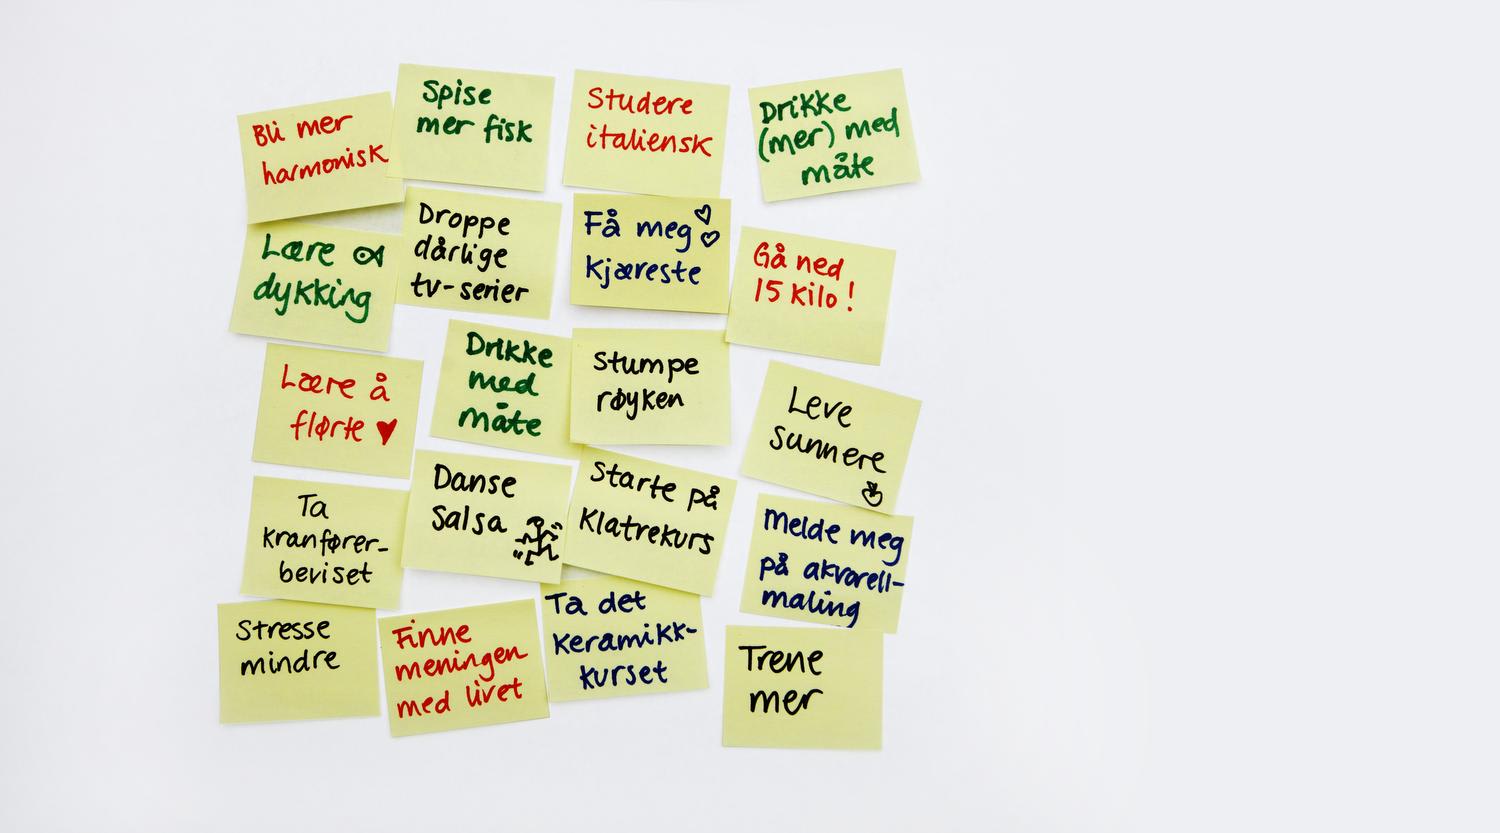 Bli mer
harmonisk
Spise
mer fisk
Studere
italiensk
Drikke
(mer) med
måte
Lære
dykking
Droppe
dårlige
tv-serier
Få meg
kjæreste
Gå ned
15 kilo!
Lære å
flørte
Drikke
med
måte
Stumpe
røyken
Leve
sunnere
Ta
kranfører-
beviset
Danse
salsa
Starte på
klatrekurs
Melde meg
på akvarell-
maling
Stresse
mindre
Finne
meningen
med livet
Ta det
keramikk-
kurset
Trene
mer